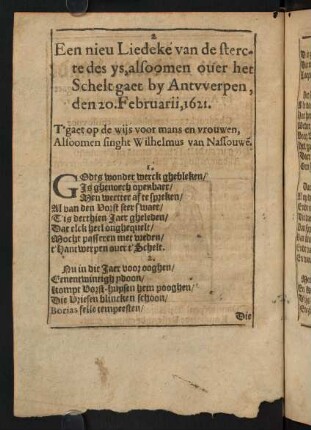 2
Een nieu Liedeke van de sterc-
te des ys, alsoomen ouer het
Schelt gaet by Antvverpen,
den 20. Februarii, 1621.
T'gaet op de wijs voor mans en vrouwen,
Alsoomen singht Wilhelmus van Nassouwē.
1.
GOdts wonder werck ghebleken/
Is ghenoech openbaer/
Men weeter af te spreken/
Al van den Vorst seer swaer/
T'is derthien Jaer gheleden/
Dat elck heel onghequelt/
Mocht passeren met vreden/
t'Hantwerpen ouer t'Schelt.
2.
Nu in dit Jaer voor ooghen/
Eenentwintigh ydoon/
kompt Vorst- hem pooghen/
Die Vriesen blincken schoon/
Borias felle tempeesten/
Die